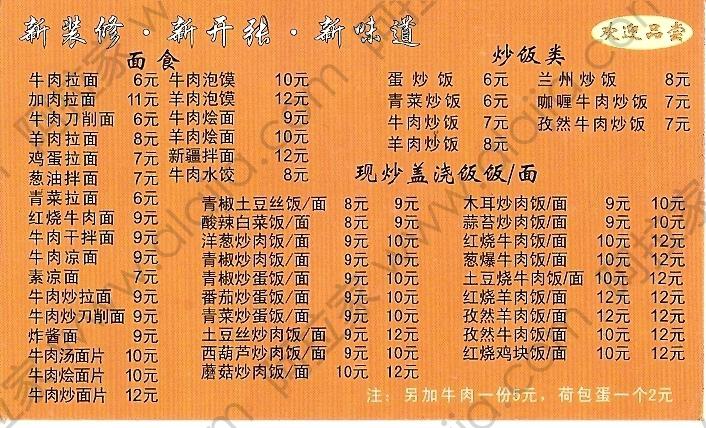 新装修·新开张·新味道
欢迎品尝
面食
牛肉拉面 6元
加肉拉面 11元
牛肉刀削面 6元
羊肉拉面 8元
鸡蛋拉面 7元
葱油拌面 7元
青菜拉面 6元
红烧牛肉面 9元
牛肉干拌面 9元
牛肉凉面 9元
素凉面 7元
牛肉炒拉面 9元
牛肉炒刀削面 9元
炸酱面 9元
牛肉汤面片 10元
牛肉烩面片 10元
牛肉炒面片 12元
牛肉泡馍 10元
羊肉泡馍 12元
牛肉烩面 9元
羊肉烩面 10元
新疆拌面 12元
牛肉水饺 8元
炒饭类
蛋炒饭 6元
青菜炒饭 6元
牛肉炒饭 7元
羊肉炒饭 8元
兰州炒饭 8元
咖喱牛肉炒饭 7元
孜然牛肉炒饭 7元
现炒盖浇饭饭/面
青椒土豆丝饭/面 8元 9元
酸辣白菜饭/面 8元 9元
洋葱炒肉饭/面 9元 10元
青椒炒肉饭/面 9元 10元
青椒炒蛋饭/面 9元 10元
番茄炒蛋饭/面 9元 10元
青菜炒蛋饭/面 9元 10元
土豆丝炒肉饭/面 9元 12元
西葫芦炒肉饭/面 9元 10元
蘑菇炒肉饭/面 10元 12元
木耳炒肉饭/面 9元 10元
蒜苔炒肉饭/面 9元 10元
红烧牛肉饭/面 10元 12元
葱爆牛肉饭/面 10元 12元
土豆烧牛肉饭/面 10元 12元
红烧羊肉饭/面 12元 12元
孜然羊肉饭/面 12元 12元
孜然牛肉饭/面 10元 12元
红烧鸡块饭/面 10元 12元
注：另加牛肉一份5元，荷包蛋一个2元